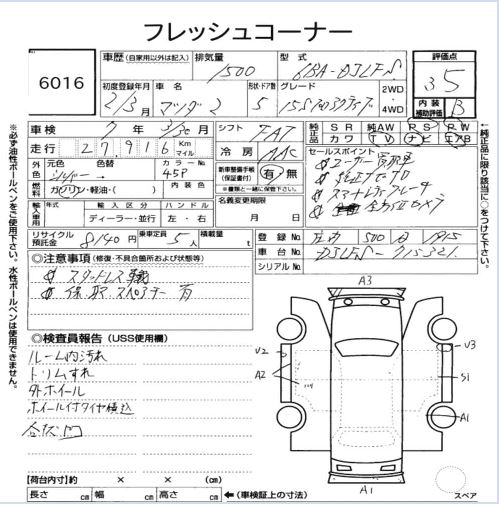 フレッシュコーナー
6016
車歴 (自家用以外は記入)
排気量
1500
型式
6BA-DJLFS
評価点
3.5
内装
補助評価
B
初度登録年月
2/3月
車名
マツダ2
形状・ドア数
5
グレード
2WD
4WD
車検
7年 3/30月
走行
27916 Km マイル
シフト
FAT
冷房
AAC
純正品
SR 純AW PS PW
カワ TV ナビ エアB
外色
元色
シルバー
色替
カラーNo.
45P
燃料
ガソリン・軽油・( )
内装色
新車整備手帳
(保証書付)
有 無
※種類と一緒に保管下さい。
セールスポイント
ユーザー買取車
純正ナビ
輸入車
年式
輸入区分
ディーラー・並行
ハンドル
左・右
名義変更期限
月 日
リサイクル
預託金
8140円
乗車定員
5人
積載量
t
登録No.
500
車台No.
DJLFS-715321
シリアルNo.
◎注意事項 (修復・不具合箇所および状態等)
スタッドレス
保、取、スペアキー有
◎検査員報告 (USS使用欄)
ルーム内汚れ
トリムすれ
外ホイール
ホイール付タイヤ積込
【荷台内寸】約 × × (cm)
長さ cm 幅 cm 高さ cm ←(車検証上の寸法)
A3
V2
A2
V3
S1
A1
A1
スペア
※必ず油性ボールペンをご使用下さい。水性ボールペンは使用できません。
←純正品に限り該当に○をつけて下さい。